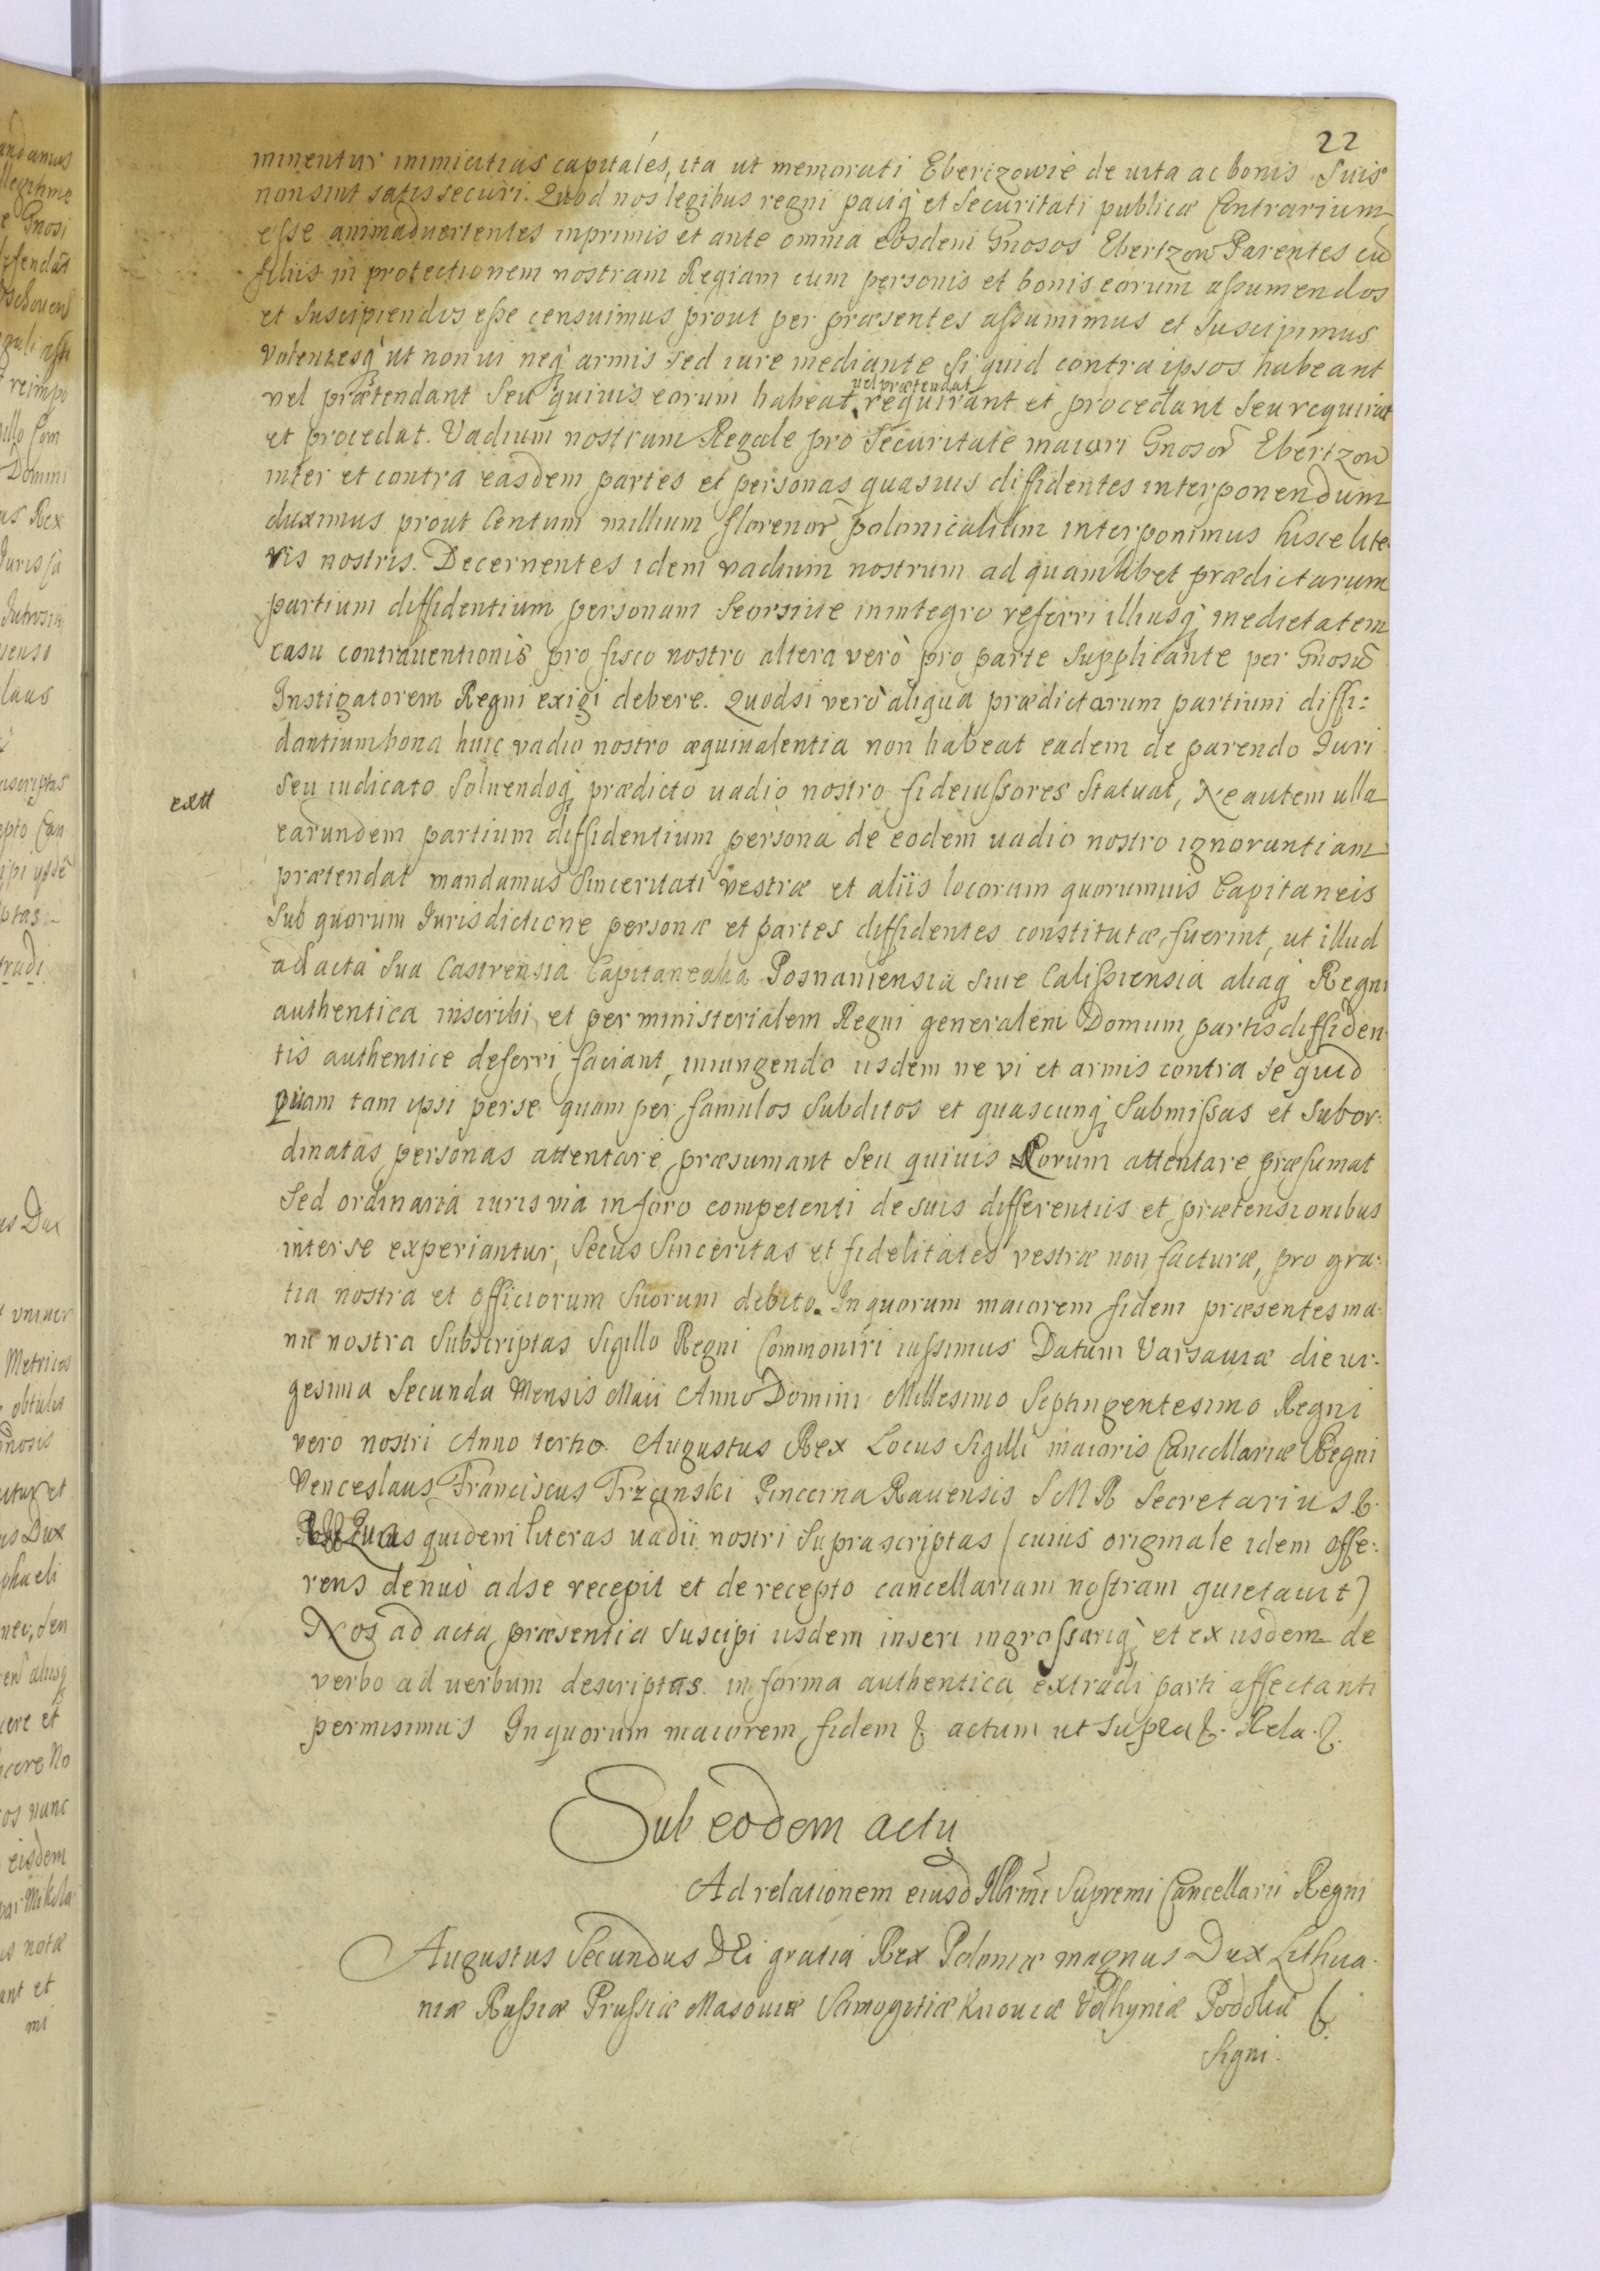 22
minentur inimicitias capitales, ita ut memorati Ebertzowie de uita ac bonis Suis
non sint satis securi. Quod nos legibus regni paciq₃ et Securitati publicæ Contrarium
esse animaduertentes inprimis et ante omnia eosdem Gnosos Ebertzow Parentes cū
filiis in protectionem nostram Regiam cum personis et bonis eorum assumendos
et Suscipiendos esse censuimus prout per præsentes assumimus et Suscipimus
volentesq₃ ut non ui neq₃ armis sed iure mediante si quid contra ipsos habeant
vel prætendant Seu quiuis eorum habeat uel prætendat requirant et procedant Seu requirat
et procedat. Vadium nostrum Regale pro Securitate maiori Gnosor̃ Ebertzow
inter et contra easdem partes et personas quasuis diffidentes interponendum
duximus prout Centum millium florenor̃ polonicalium interponimus hisce lite-
ris nostris. Decernentes idem vadium nostrum ad quamlibet prædictarum
partium diffidentium personam Seorsiue inintegro referri illiusq₃ medietatem
casu contrauentionis pro fisco nostro altera verò pro parte Supplicante per Gnosū
Instigatorem Regni exigi debere. Quodsi verò aliqua prædictarum partium diffi:
dantium bona huic vadio nostro æquiualentia non habeat eadem de parendo Juri
extt
Seu iudicato Soluendoq₃ prædicto uadio nostro fideiussores Statuat, Ne autem ulla
earundem partium diffidentium persona de eodem uadio nostro ignorantiam
prætendat mandamus Sinceritati vestræ et aliis locorum quorumuis Capitaneis
Sub quorum Jurisdictione personæ et partes diffidentes constitutæ fuerint, ut illud
ad acta Sua Castrensia Capitanealia Posnaniensia Siue Calissiensia aliaq₃ Regni
authentica inscribi et per ministerialem Regni generalem Domum partis diffiden-
tis authentice deferri faciant, iniungendo iisdem ne vi et armis contra se quid
quam tam ipsi per se quam per famulos Subditos et quascunq₃ Submissas et Subor-
dinatas personas attentare præsumant Seu quiuis Eorum attentare præsumat
Sed ordinaria iuris via in foro competenti de suis differentiis et prætensionibus
inter se experiantur, Secus Sinceritas et fidelitates vestræ non facturæ, pro gra-
tia nostra et officiorum Suorum debito. In quorum maiorem fidem præsentes ma-
nu nostra Subscriptas Sigillo Regni Commoniri iussimus Datum Varsauiæ die ui-
gesima Secunda Mensis Maii Anno Domini Millesimo Septingentesimo Regni
vero nostri Anno tertio. Augustus Rex Locus Sigilli maioris Cancellariæ Regni
Venceslaus Franciscus Trzcinski Pincerna Rauensis S M R Secretarius &.
Quas quidem literas uadii nostri Suprascriptas (cuius originale idem offe-
rens denuò ad se recepit et de recepto cancellariam nostram quietauit)
Nos ad acta præsentia Suscipi iisdem inseri ingrossariq₃ et ex iisdem de
verbo ad uerbum descriptas in forma authentica extradi parti affectanti
permisimus In quorum maiorem fidem & actum ut supra &. Rela. &.
Sub eodem actu
Ad relationem eiusd Illrmi Supremi Cancellarii Regni
Augustus Secundus DEi gratia Rex Poloniæ magnus Dux Lithua-
niæ Russiæ Prussiæ Masouiæ Samogitiæ Kiiouiæ Volhyniæ Podoliæ &.
Signi.